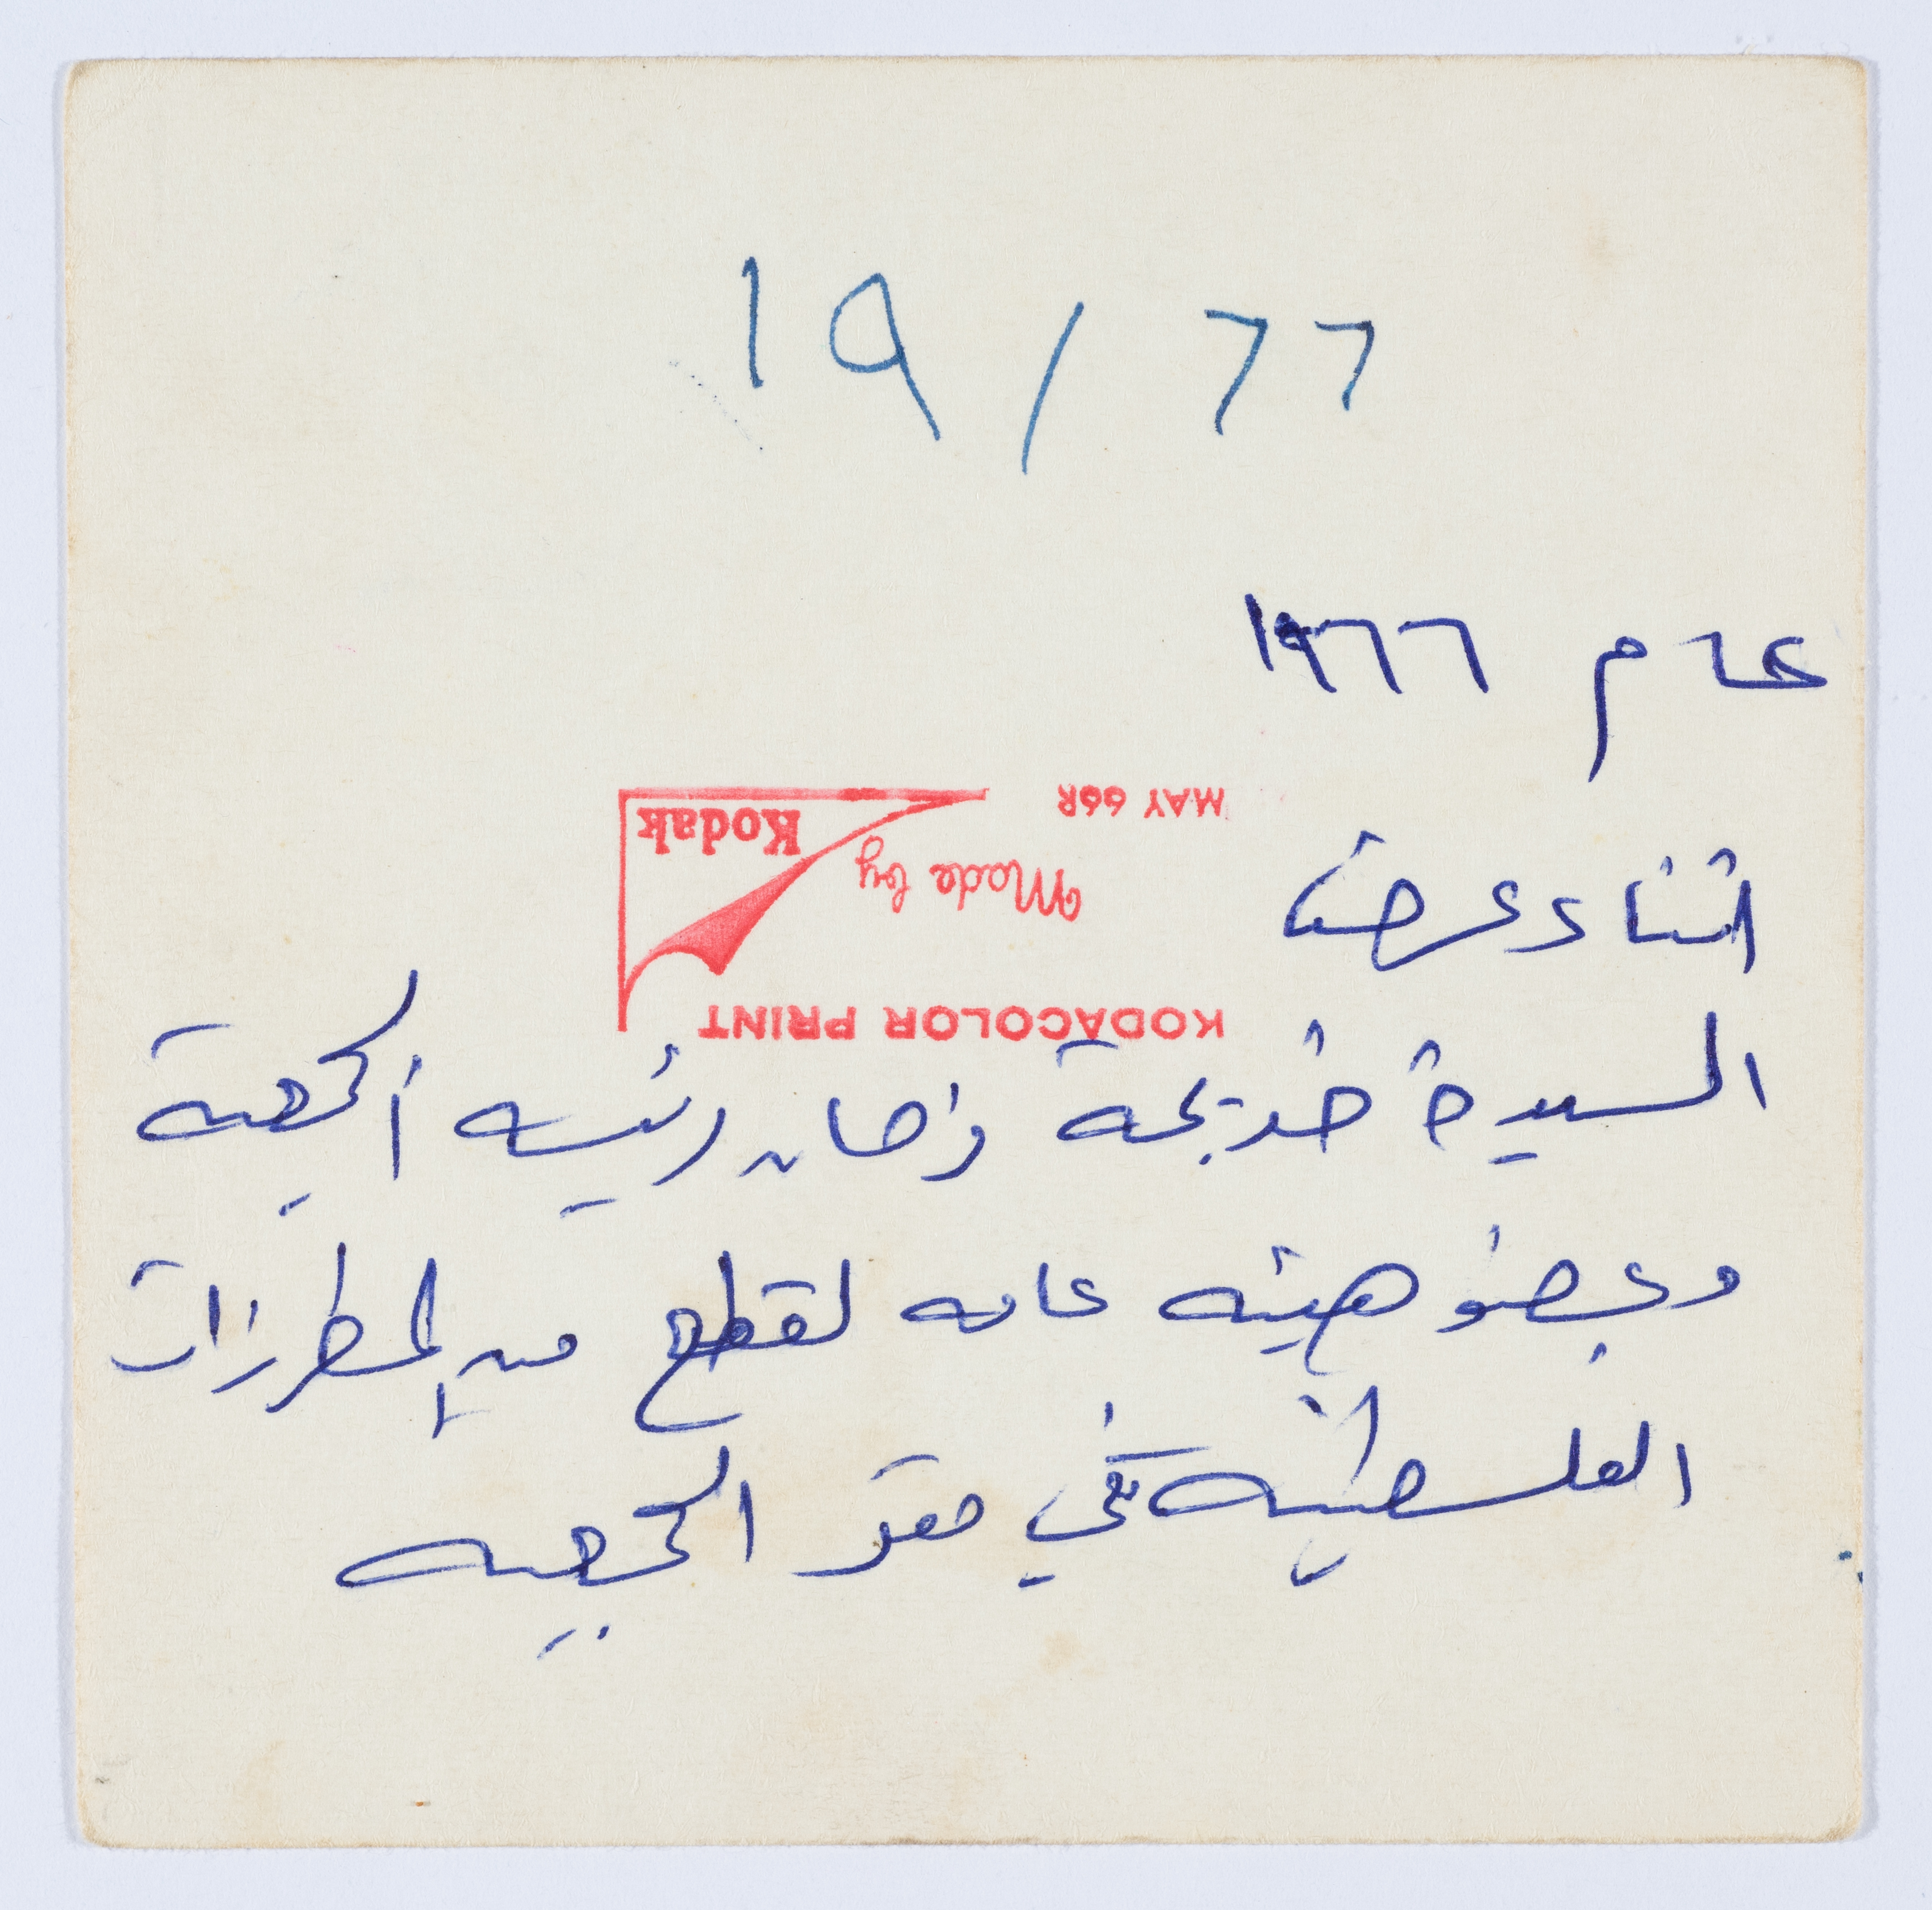 ١٩ / ٦٦
عام ١٩٦٦
MAY 66R
Kodak
Made by
KODACOLOR PRINT
اثناء عرض
السيدة خديجة رئيسة الجمعية
وعضو هيئة عامه لقطع من المطرزات
الفلسطينية في مقر الجمعية